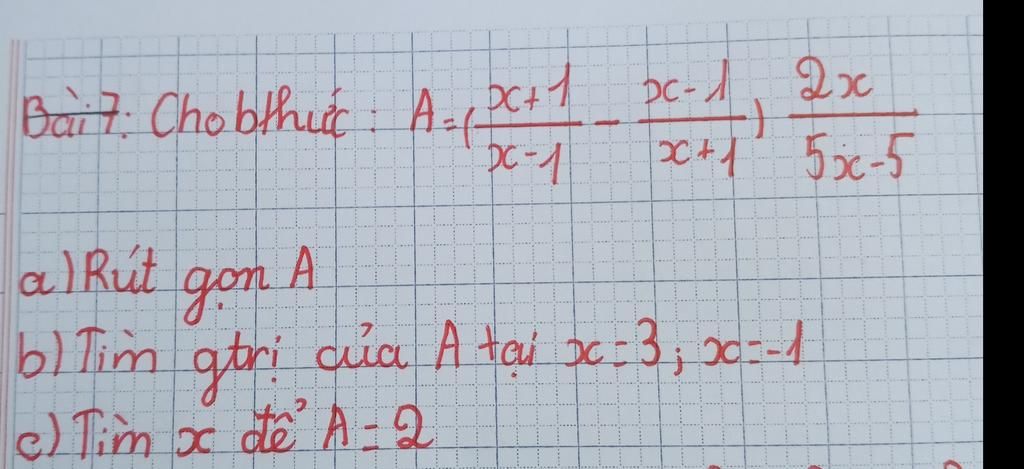 Bài 7: Cho bthức : A = ( \frac{x+1}{x-1} - \frac{x-1}{x+1} ) \frac{2x}{5x-5}
a) Rút gọn A
b) Tìm gtrị của A tại x = 3 ; x = -1
c) Tìm x để A = 2